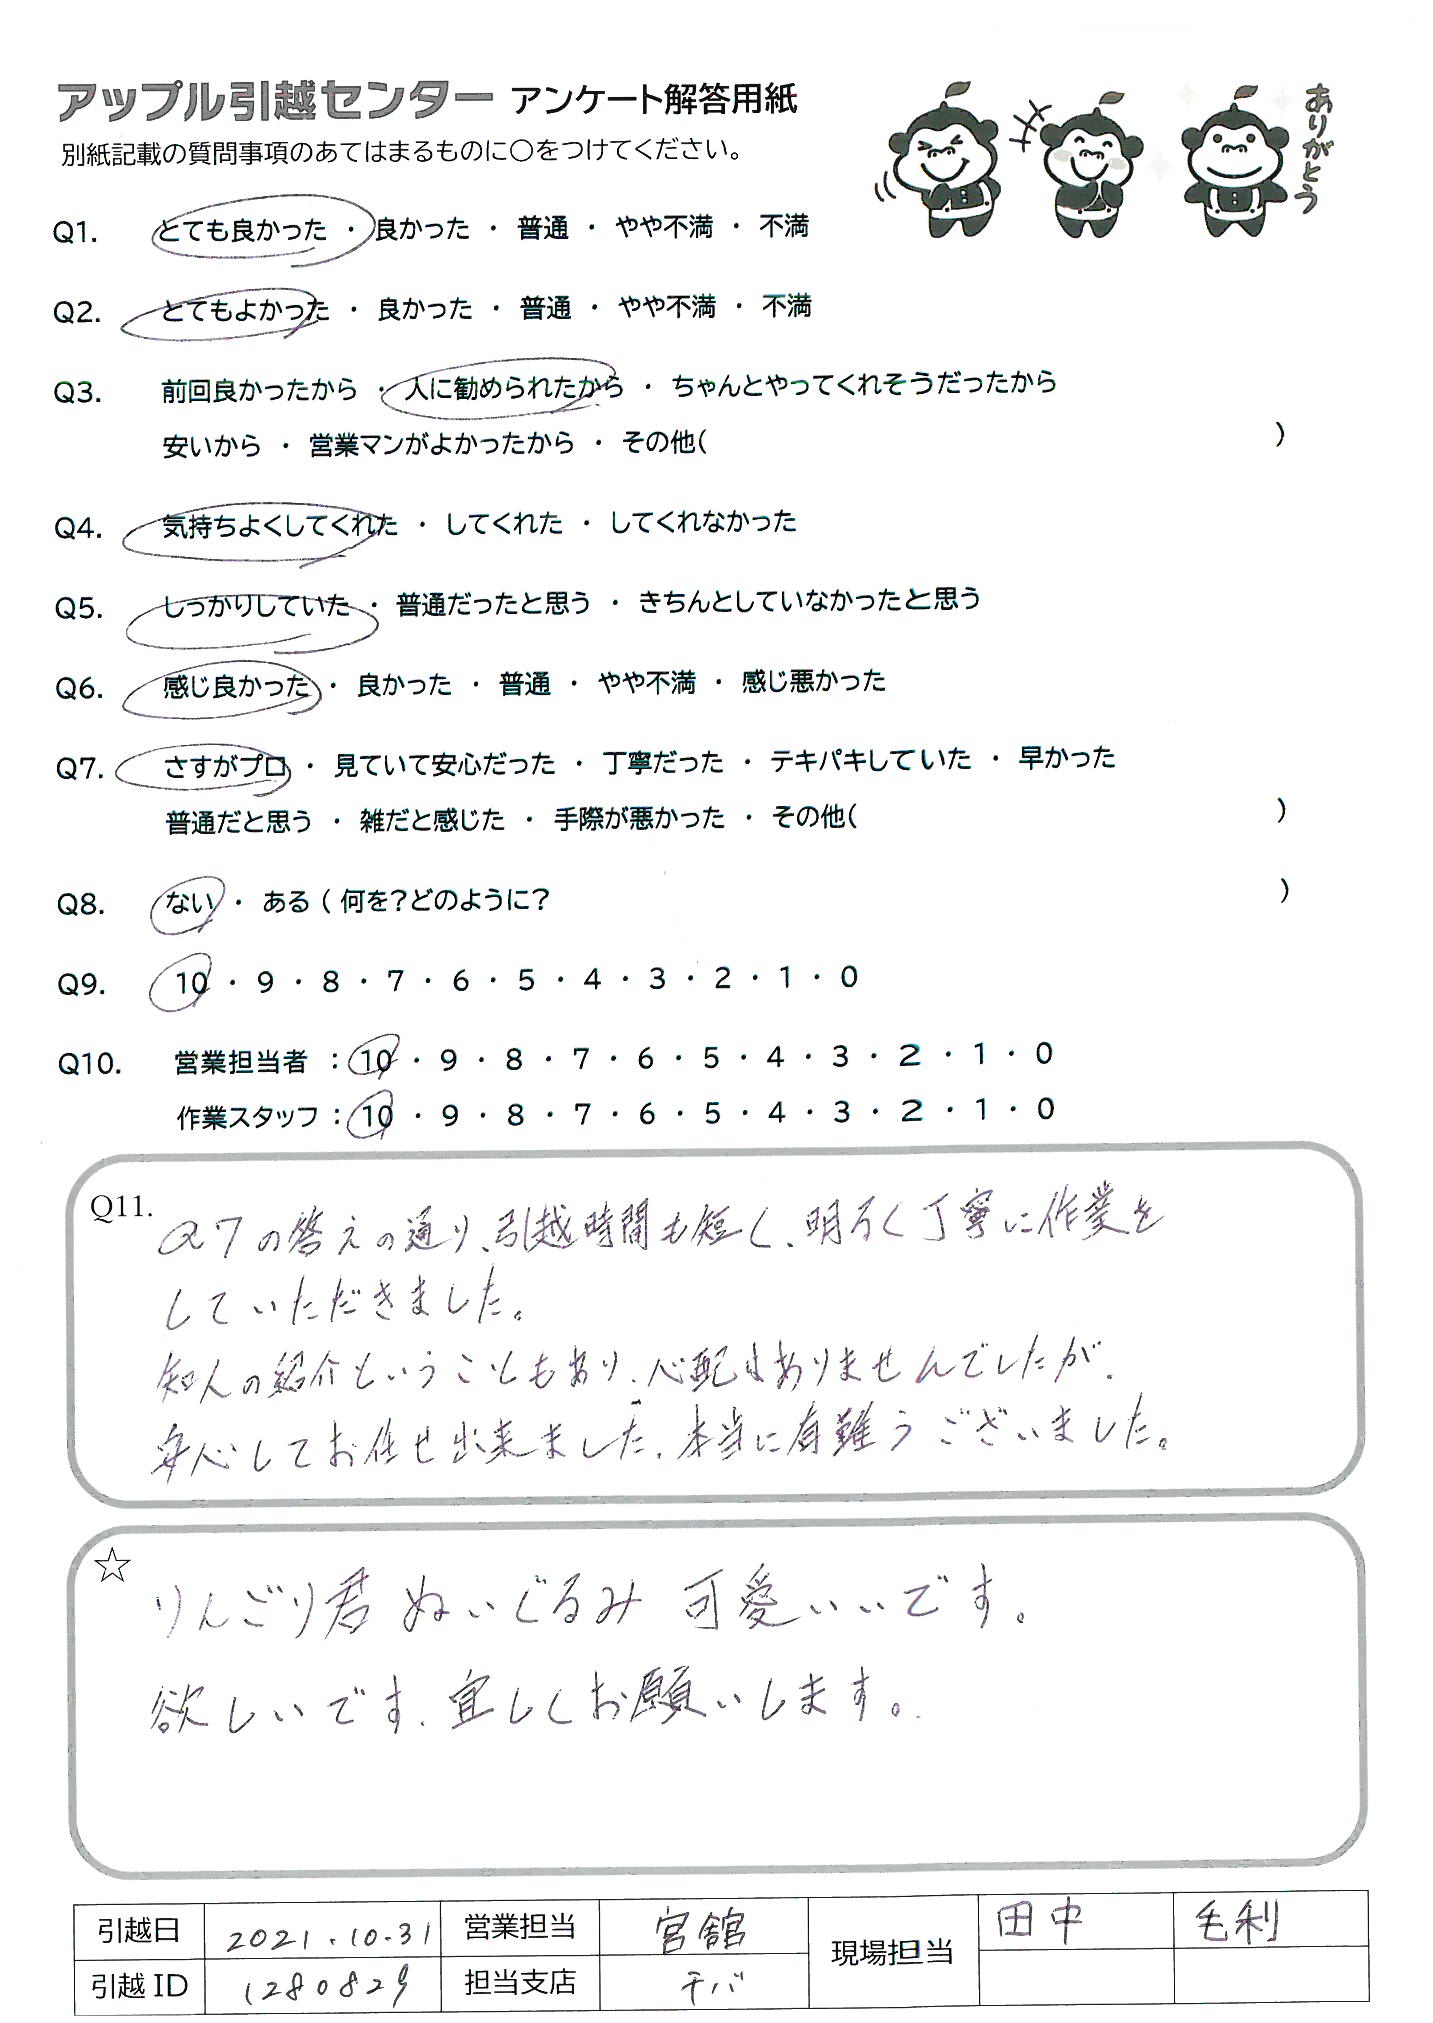 アップル引越センター アンケート解答用紙
別紙記載の質問事項のあてはまるものに○をつけてください。
ありがとう
Q1. とても良かった ・ 良かった ・ 普通 ・ やや不満 ・ 不満
Q2. とてもよかった ・ 良かった ・ 普通 ・ やや不満 ・ 不満
Q3. 前回良かったから ・ 人に勧められたから ・ ちゃんとやってくれそうだったから
安いから ・ 営業マンがよかったから ・ その他( )
Q4. 気持ちよくしてくれた ・ してくれた ・ してくれなかった
Q5. しっかりしていた ・ 普通だったと思う ・ きちんとしていなかったと思う
Q6. 感じ良かった ・ 良かった ・ 普通 ・ やや不満 ・ 感じ悪かった
Q7. さすがプロ ・ 見ていて安心だった ・ 丁寧だった ・ テキパキしていた ・ 早かった
普通だと思う ・ 雑だと感じた ・ 手際が悪かった ・ その他( )
Q8. ない ・ ある ( 何を?どのように? )
Q9. 10 ・ 9 ・ 8 ・ 7 ・ 6 ・ 5 ・ 4 ・ 3 ・ 2 ・ 1 ・ 0
Q10. 営業担当者 : 10 ・ 9 ・ 8 ・ 7 ・ 6 ・ 5 ・ 4 ・ 3 ・ 2 ・ 1 ・ 0
作業スタッフ : 10 ・ 9 ・ 8 ・ 7 ・ 6 ・ 5 ・ 4 ・ 3 ・ 2 ・ 1 ・ 0
Q11. Q7の答えの通り、引越時間も短く、明るく丁寧に作業を
していただきました。
知人の紹介ということもあり、心配はありませんでしたが、
安心してお任せ出来ました。本当に有難うございました。
☆ りんごり君 ぬいぐるみ 可愛いいです。
欲しいです。宜しくお願いします。
引越日 2021.10.31 営業担当 宮舘 現場担当 田中 毛利
引越ID 1280829 担当支店 千バ